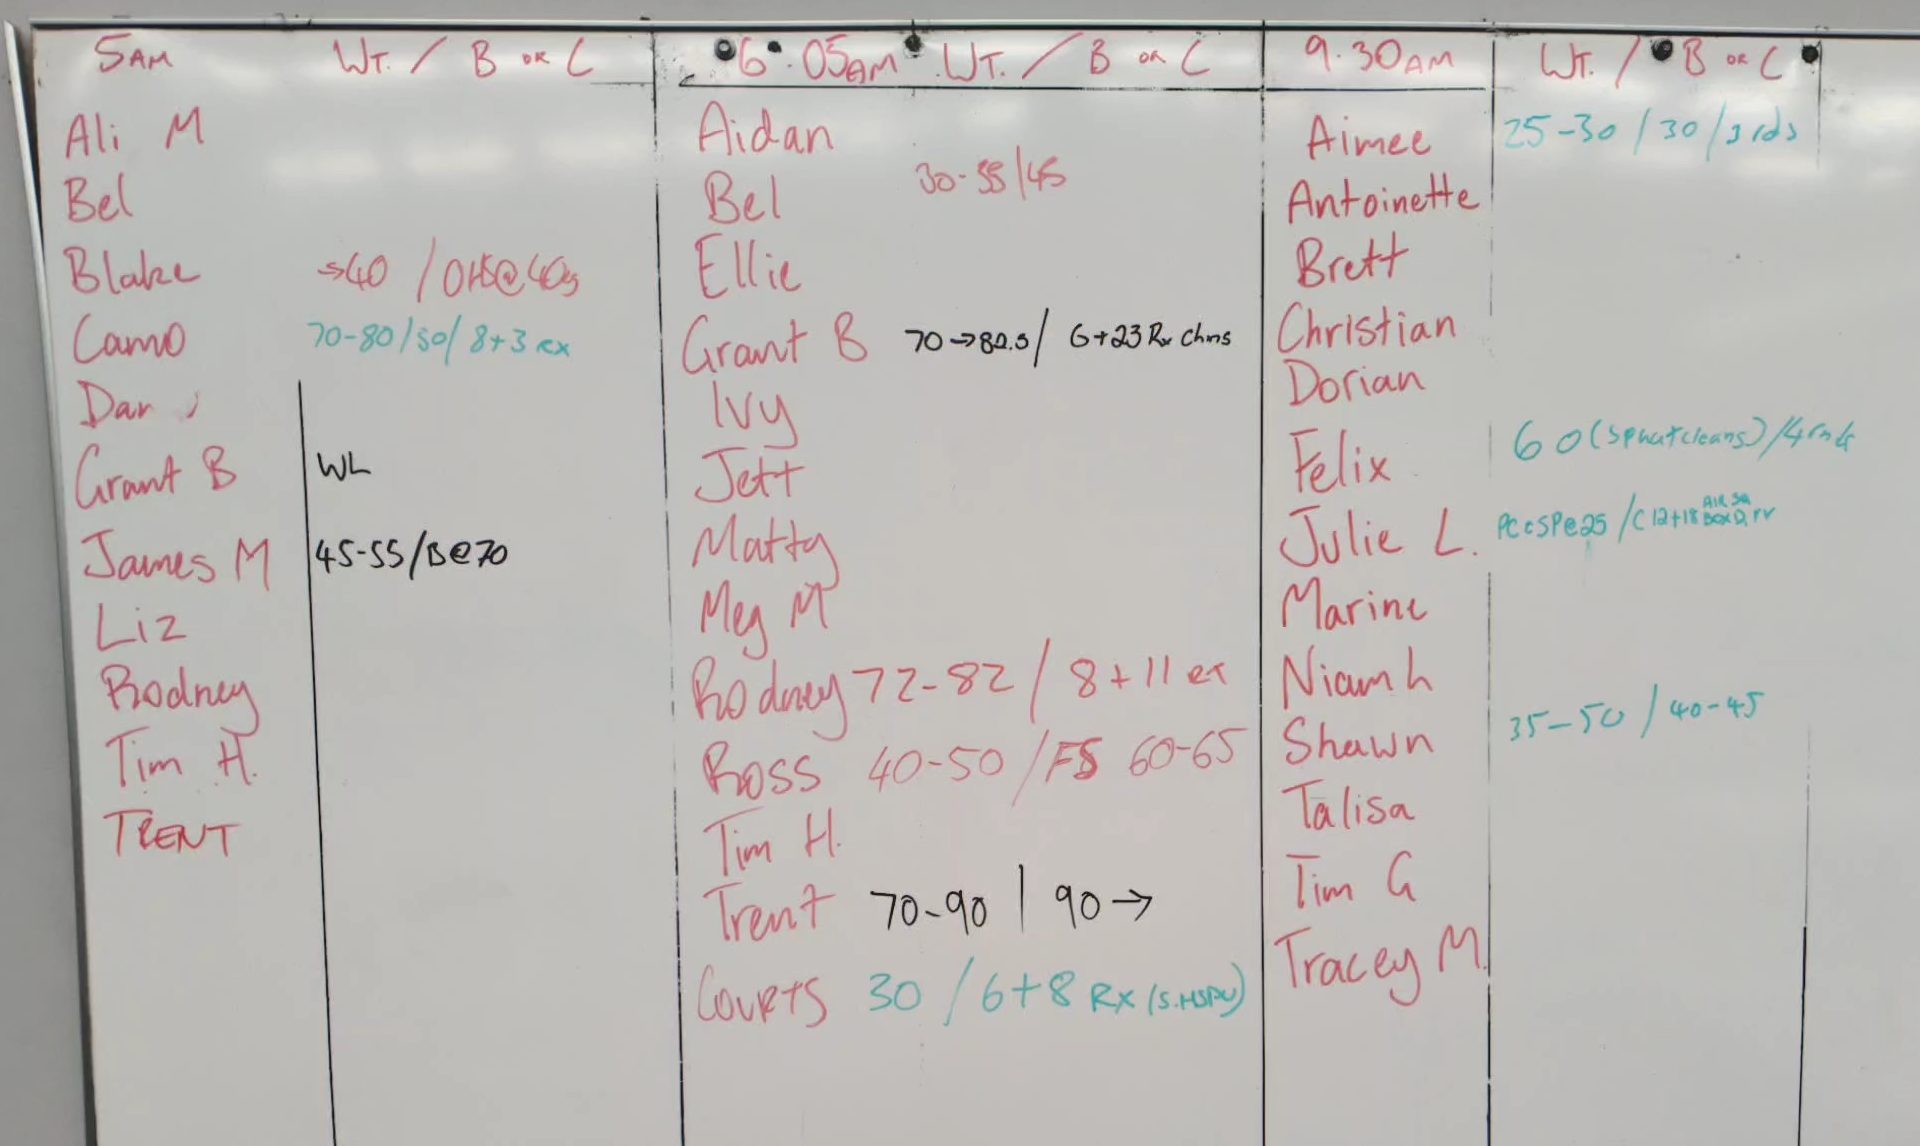 5AM WT. / B OR C
Ali M
Bel
Blake →40 / OHS@40
Camo 70-80/50/ 8+3 rx
Dan
Grant B WL
James M 45-55/B@70
Liz
Rodney
Tim H.
TRENT
6.05AM WT. / B OR C
Aidan
Bel 30-35/45
Ellie
Grant B 70→82.5/ 6+23 Rx chns
Ivy
Jett
Matty
Meg M
Rodney 72-82 / 8+11 rx
Ross 40-50 /FS 60-65
Tim H.
Trent 70-90 | 90→
Courts 30 / 6+8 RX (S.HSPU)
9.30AM WT. / B OR C
Aimee 25-30 / 30 / 3 rds
Antoinette
Brett
Christian
Dorian
Felix 60 (Sphatcleans)/4rnds
Julie L. PC+SP@25 /C 12+18 AIR SQ BOX D,
Marine
Niamh
Shawn 35-50 / 40-45
Talisa
Tim G
Tracey M.